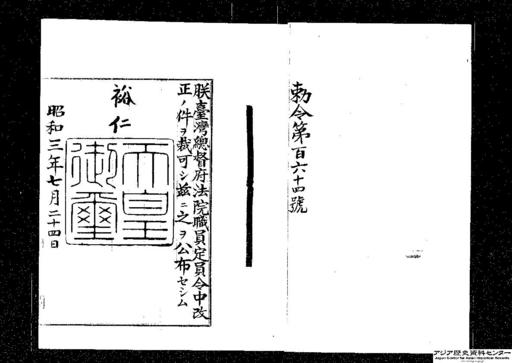 勅令第百六十四號
朕臺灣總督府法院職員定員令中改
正ノ件ヲ裁可シ茲ニ之ヲ公布セシム
裕仁
天皇御璽
昭和三年七月二十四日
アジア歴史資料センター
Japan Center for Asian Historical Records